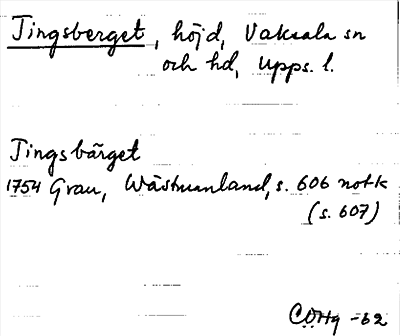 Tingsberget, höjd, Vaksala sn
och hd, Upps. l.
Tingsbärget
1754 Grau, Wästmanland, s. 606 not k
(s. 607)
-62